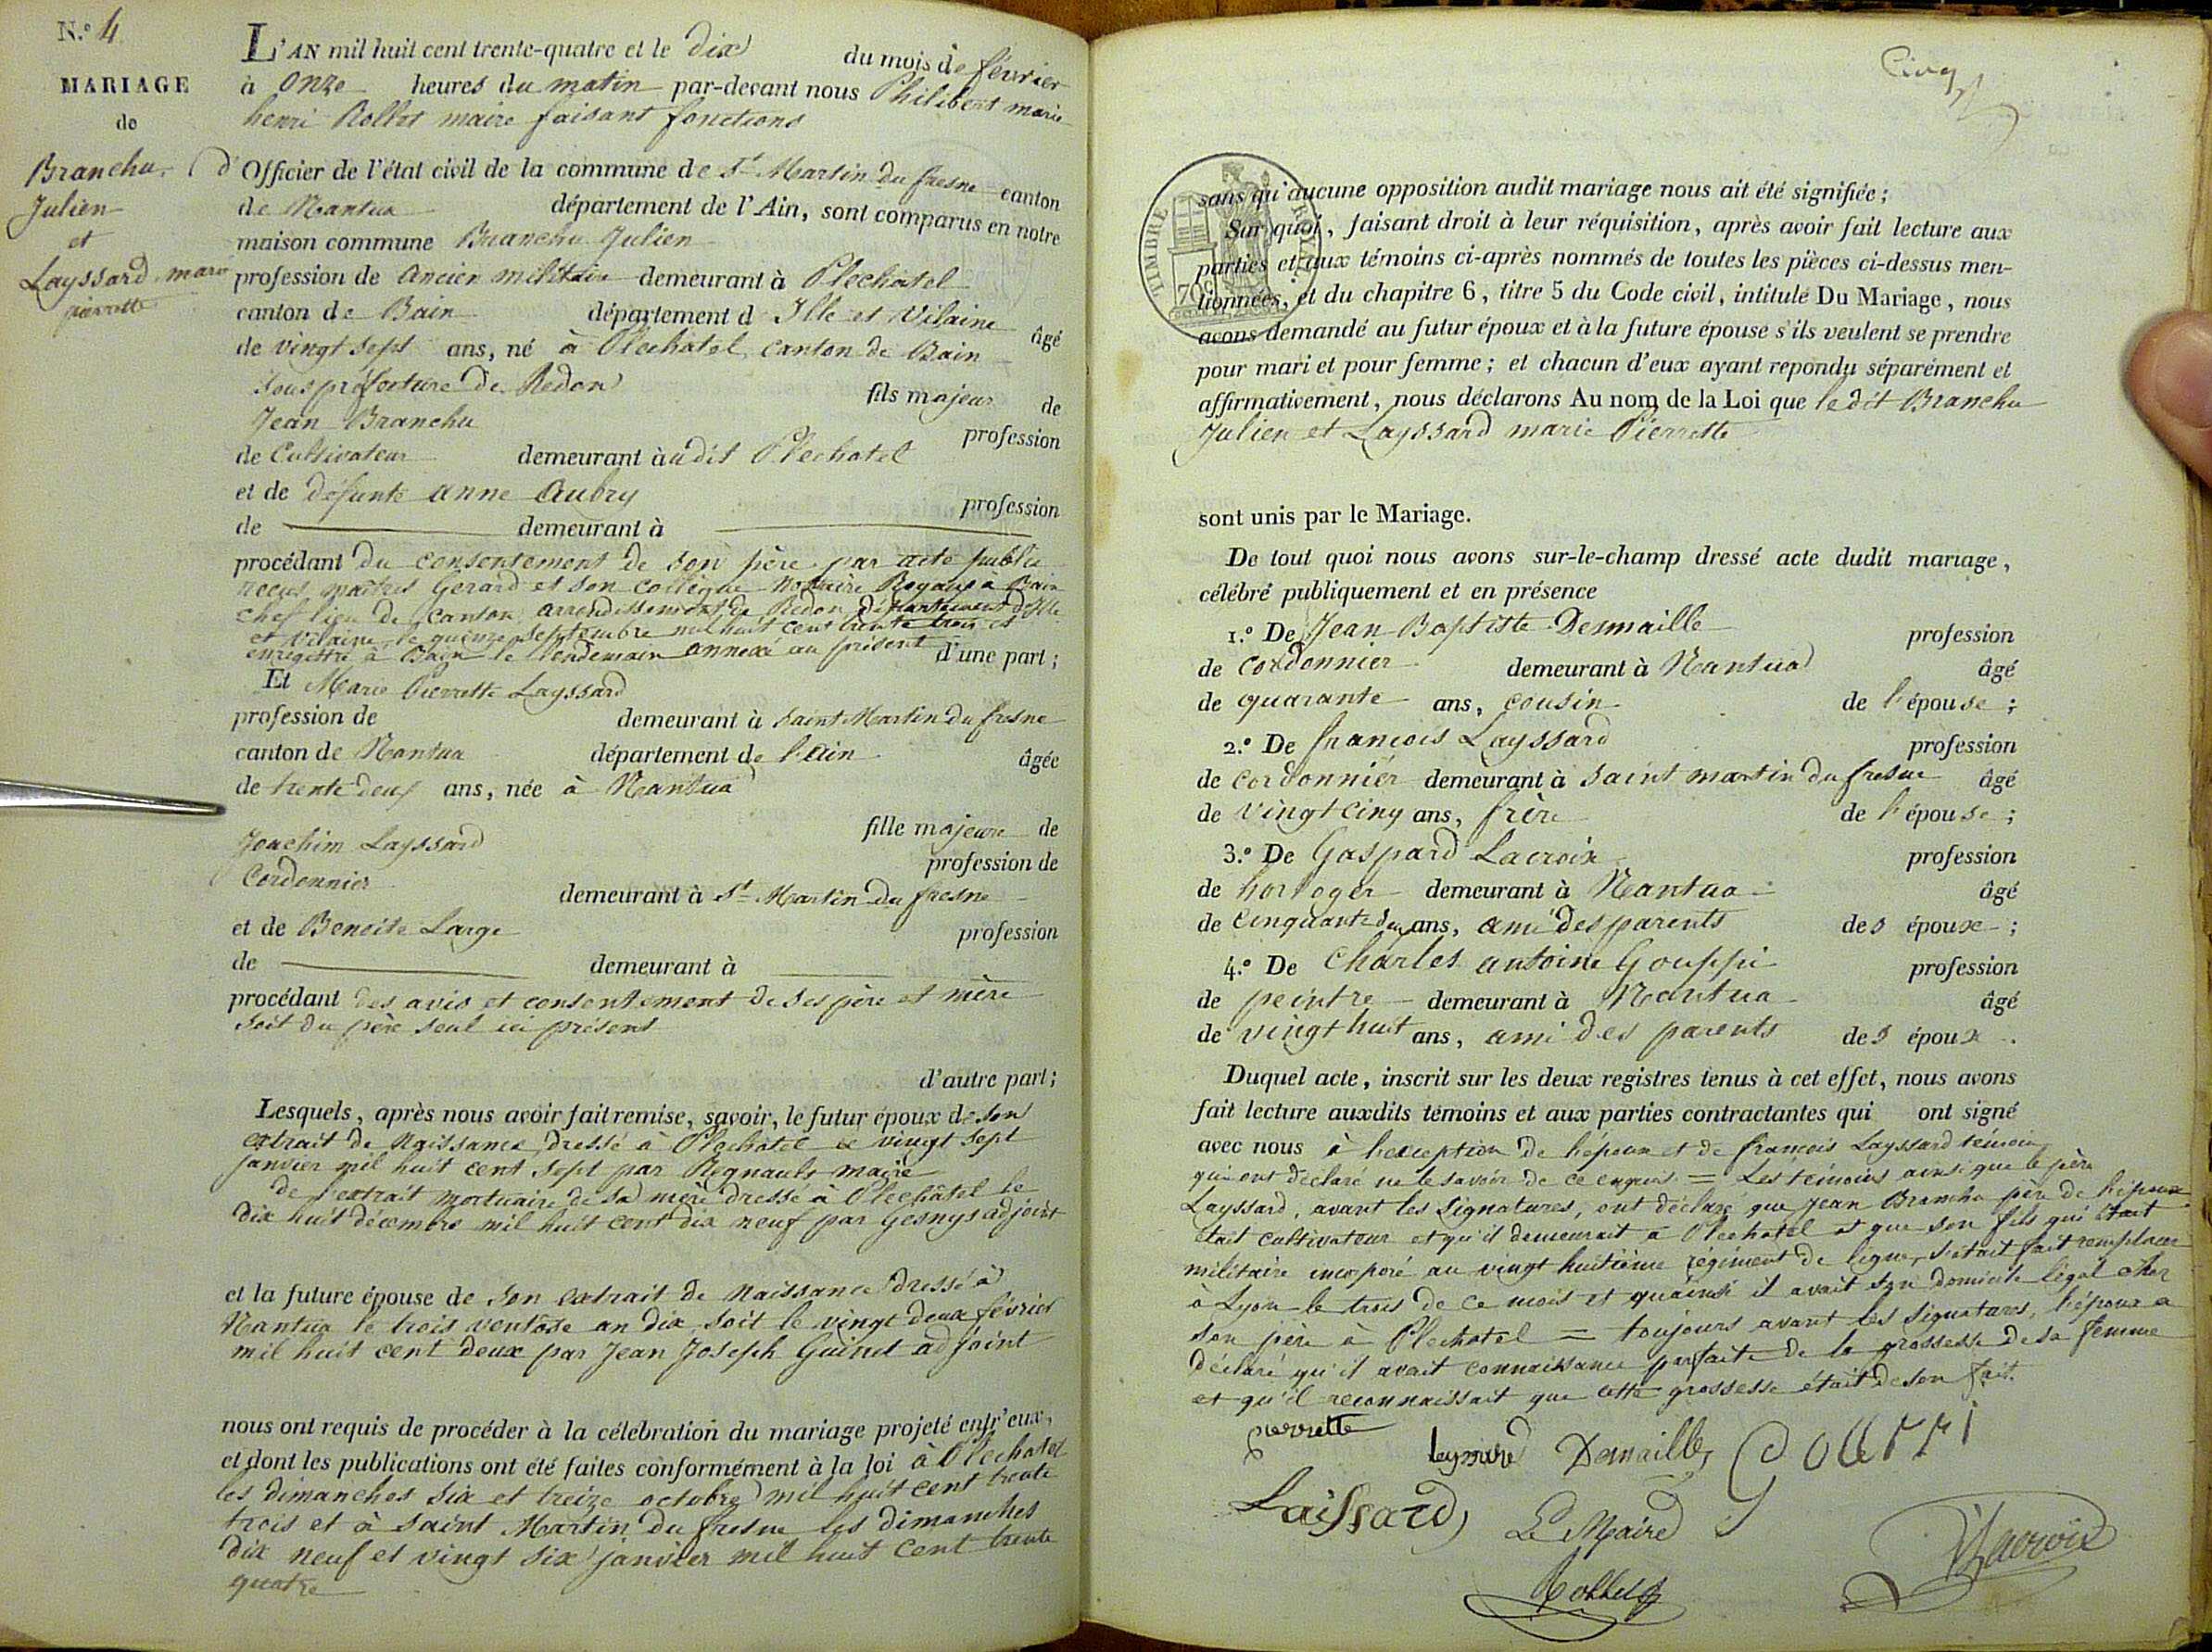 N.º 4
MARIAGE
de
Branchu
Julien
et
Layssard marie
pierrette
L'AN mil huit cent trente-quatre et le dix du mois de février
à onze heures du matin par-devant nous Philibert marie
henri Rollet maire faisant fonctions
d'Officier de l'état civil de la commune de St Martin du fresne canton
de Nantua département de l'Ain, sont comparus en notre
maison commune Branchu Julien
profession de ancien militaire demeurant à Plechatel
canton de Bain département d Ille et Vilaine âgé
de vingt sept ans, né à Plechatel canton de Bain
sous préfecture de Redon fils majeur de
Jean Branchu profession
de Cultivateur demeurant àudit Plechatel
et de défunte anne Aubry profession
de demeurant à
procédant du consentement de son père par acte public
recus maîtres Gerard et son collègue Notaire Royaux a Bain
chef lieu de canton arrondissement de Redon département d'Ille
et Vilaine, le quinze septembre mil huit cent trente trois et
enregistré à Bain le lendemain annexé au présent d'une part;
Et Marie Pierrette Layssard
profession de demeurant à Saint Martin du fresne
canton de Nantua département de l'Ain âgée
de trente deux ans, née à Nantua
fille majeure de
Joachim Layssard profession de
Cordonnier demeurant à St Martin du fresne
et de Benoite Large profession
de demeurant à
procédant des avis et consentement de ses père et mère
soit du père seul ici présent
d'autre part;
Lesquels, après nous avoir fait remise, savoir, le futur époux de son
extrait de Naissance dressé à Plechatel le vingt sept
janvier mil huit cent sept par Regnault maire
de l'extrait mortuaire de sa mère dressé à Plechâtel le
dix huit décembre mil huit cent dix neuf par Gesnys adjoint
et la future épouse de son extrait de Naissance dressé à
Nantua le trois ventose an dix soit le vingt deux février
mil huit cent deux par Jean Joseph Guinet adjoint
nous ont requis de procéder à la célebration du mariage projeté entr'eux,
et dont les publications ont été faites conformément à la loi à Plechatel
les dimanches six et treize octobre mil huit cent trente
trois et à Saint Martin du fresne les dimanches
dix neuf et vingt six janvier mil huit cent trente
quatre
Cinq
TIMBRE ROYAL
70c
sans qu'aucune opposition audit mariage nous ait été signifiée;
Sur quoi, faisant droit à leur réquisition, après avoir fait lecture aux
parties et aux témoins ci-après nommés de toutes les pièces ci-dessus men-
tionnées, et du chapitre 6, titre 5 du Code civil, intitulé Du Mariage, nous
avons demandé au futur époux et à la future épouse s'ils veulent se prendre
pour mari et pour femme; et chacun d'eux ayant repondu séparément et
affirmativement, nous déclarons Au nom de la Loi que le dit Branchu
Julien et Layssard marie Pierrette
sont unis par le Mariage.
De tout quoi nous avons sur-le-champ dressé acte dudit mariage,
célébré publiquement et en présence
1.º De Jean Baptiste Desmaille profession
de cordonnier demeurant à Nantua âgé
de quarante ans, cousin de l'épouse;
2.º De françois Layssard profession
de cordonniér demeurant à Saint martin du fresne âgé
de vingt cinq ans, frère de l'épouse;
3.º De Gaspard Lacroix profession
de horloger demeurant à Nantua âgé
de cinquante deux ans, ami des parents des époux;
4.º De Charles antoine Gouppi profession
de peintre demeurant à Nantua âgé
de vingt huit ans, ami des parents des époux.
Duquel acte, inscrit sur les deux registres tenus à cet effet, nous avons
fait lecture auxdits témoins et aux parties contractantes qui ont signé
avec nous à l'exception de l'époux et de françois Layssard témoin
qui ont déclaré ne le savoir de ce enquis = Les témoins ainsi que le père
Layssard, avant les signatures, ont déclaré que Jean Branchu père de l'époux
était cultivateur et qu'il demeurait à Plechatel et que son fils qui était
militaire incorporé au vingt huitième régiment de ligne, s'était fait remplacer
à Lyon le trois de ce mois et qu'ainsi il avait son domicile légal chez
son père à Plechatel = toujours avant les signatures, l'époux a
déclaré qu'il avait connaissance parfaite de la grossesse de sa femme
et qu'il reconnaissait que cette grossesse était de son fait.
pierrette leyssard Demailles Gouppi
Laissard Le Maire
Rollet Lacroix